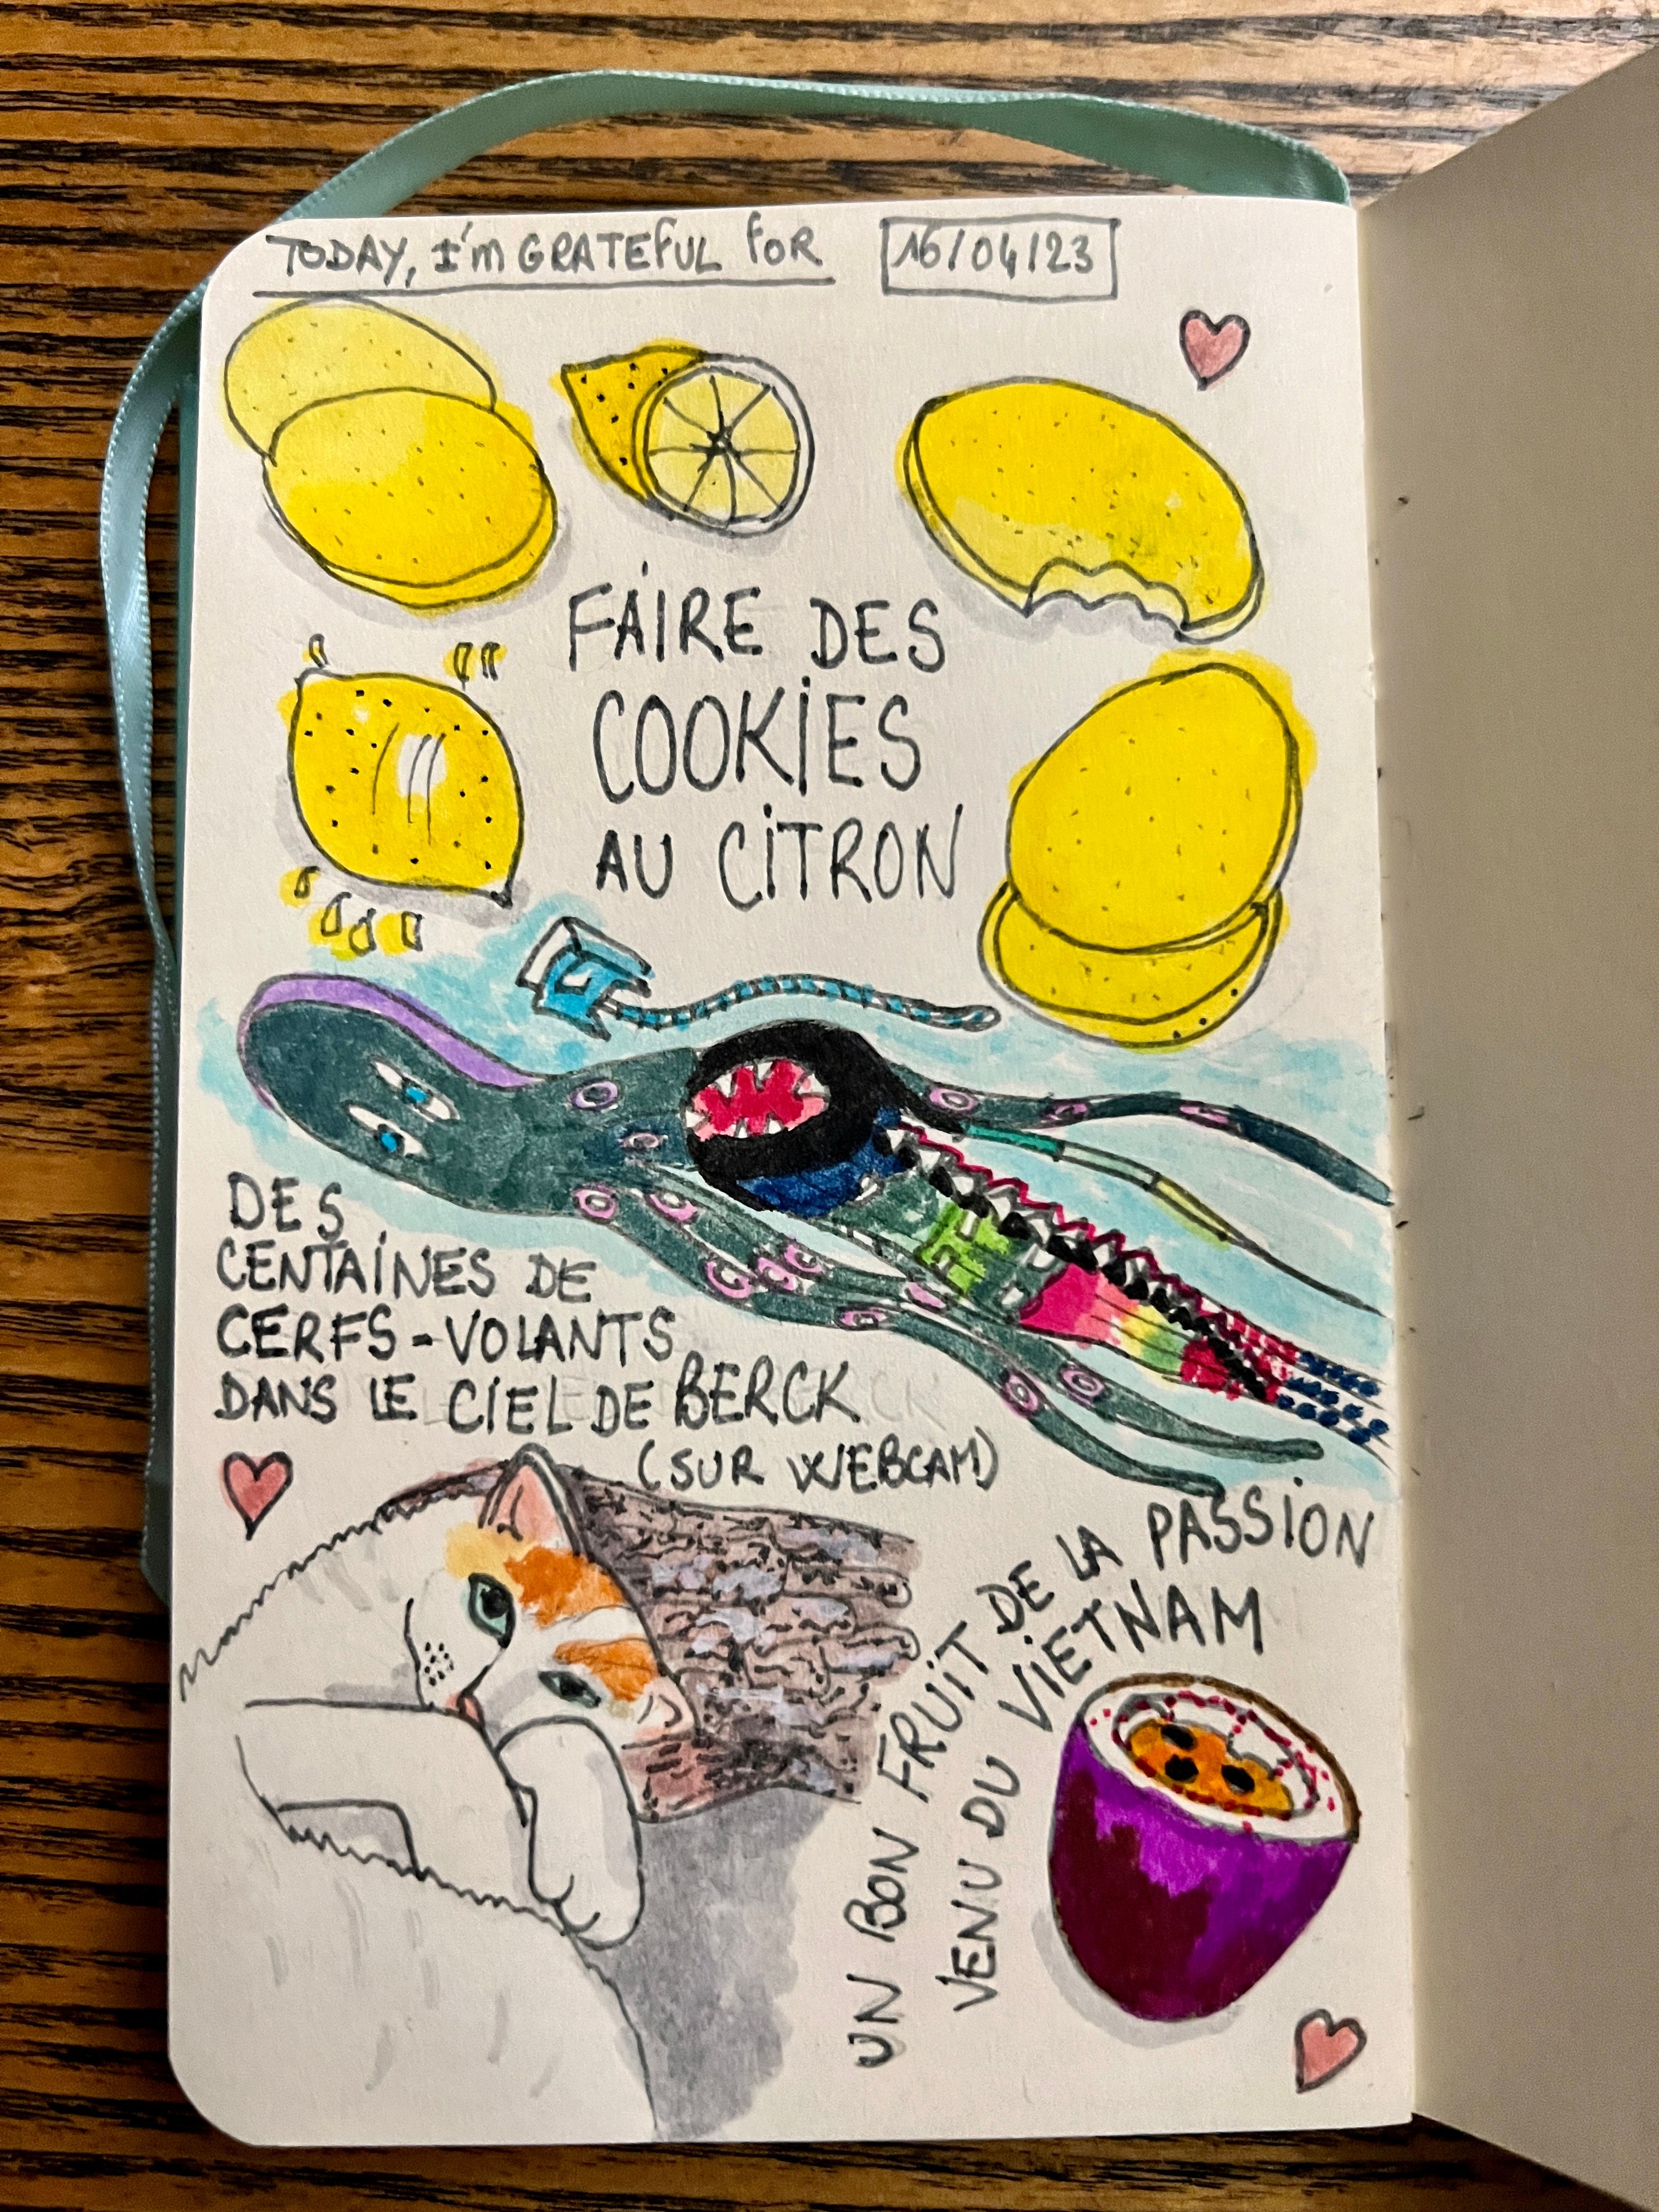 TODAY, I'm GRATEFUL FOR
16/04/23
FAIRE DES
COOKIES
AU CITRON
DES
CENTAINES DE
CERFS-VOLANTS
DANS LE CIEL DE BERCK
(SUR WEBCAM)
UN BON FRUIT DE LA PASSION
VENU DU VIETNAM